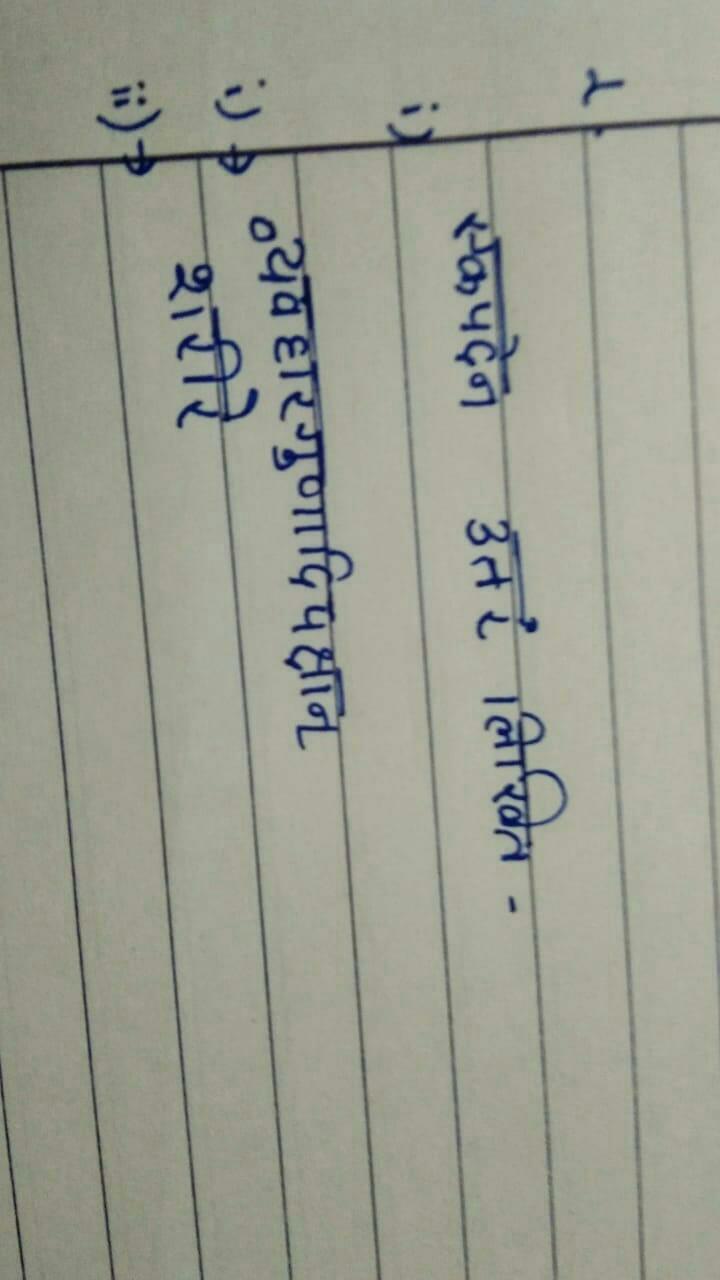 2.
i) एकपदेन उतरं लिखित -
i) → व्यवहारगुणादिपक्षान
ii) → शरीरे